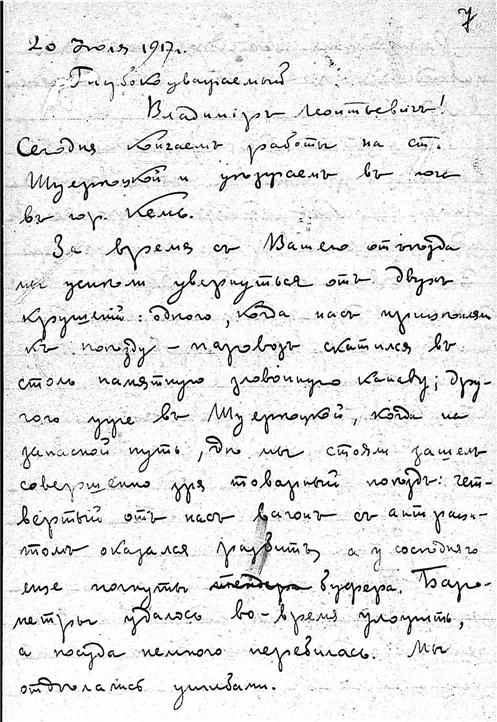 7
20 Июля 1917 г.
Глубокоуважаемый
Владимiръ Леонтьевичъ!
Сегодня кончаемъ работы на ст.
Шуерецкой и уѣзжаемъ въ
въ гор. Кемь.
За время съ Вашего отъѣзда
мы успѣли увернуться отъ двухъ
крушенiй: одного, когда насъ прицѣпляли
къ поѣзду – паровозъ скатился въ
столь памятную зловонную канаву; дру-
гого уже въ Шуерецкой, когда на
запасной путь, гдѣ мы стояли зашелъ
совершенно зря товарный поѣздъ: чет-
вертый отъ насъ вагонъ съ антраци-
томъ оказался разбитъ, а у сосѣдняго
еще погнуты буфера. Баро-
метры удалось во-время уложить,
а посуда немного перебилась. Мы
отдѣлались ушибами.